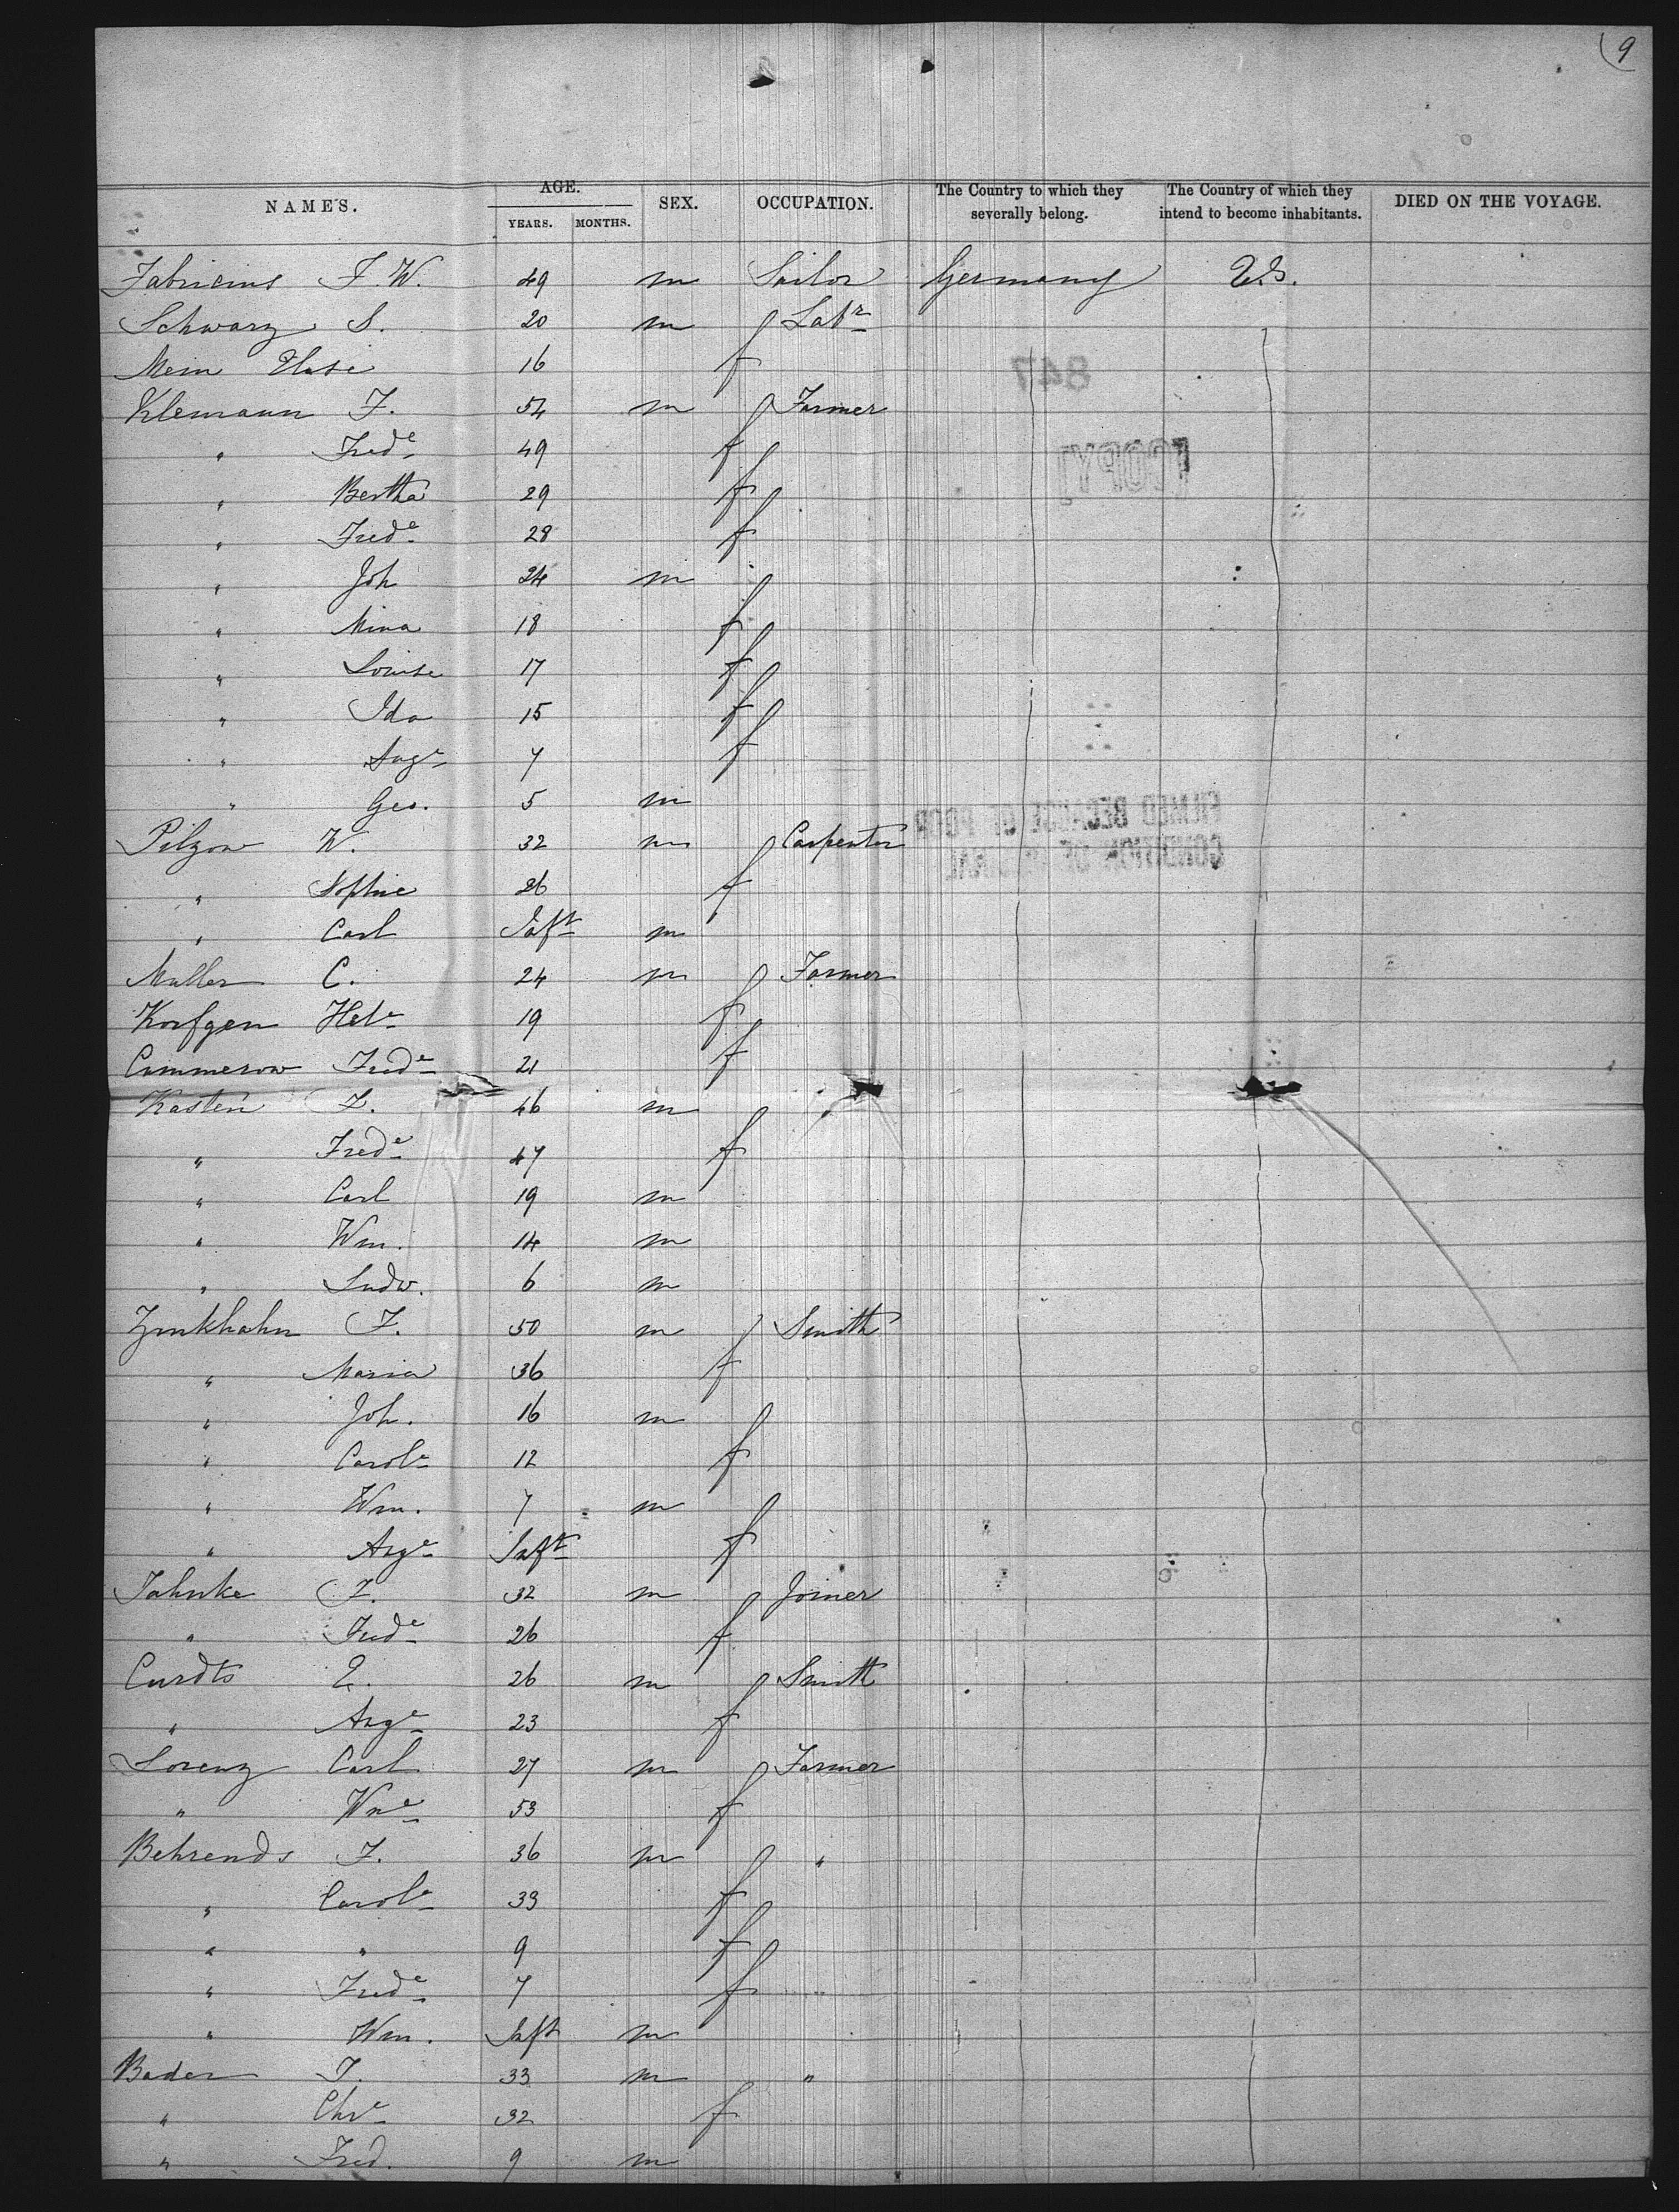 9
NAMES. AGE. YEARS. MONTHS. SEX. OCCUPATION. The Country to which they severally belong. The Country of which they intend to become inhabitants. DIED ON THE VOYAGE.
Fabricius F. W. 49 m Sailor Germany U.S.
Schwarz S. 20 m Labr
Mein 16 f
Klemann F. 54 m Farmer
" Frede 49 f
" Bertha 29 f
" Frede 28 f
" Joh 24 m
" Mina 18 f
" Louise 17 f
" Ida 15 f
" Auge 7 f
" Geo. 5 m
Pilzow W. 32 m Carpenter
" Sophie 26 f
" Carl Inft m
Muller C. 24 m Farmer
Korfgen Hele 19 f
Cummerow Frede 21 f
Kasten F. 46 m
" Frede 47 f
" Carl 19 m
" Wm. 14 m
" Ludw. 6 m
Zinkhahn F. 50 m Smith
" Maria 36 f
" Joh. 16 m
" Carole 12 f
" Wm. 7 m
" Auge Inft f
Jahnke F. 32 m Joiner
" Frede 26 f
Curdts E. 26 m Smith
" Auge 23 f
Lorenz Carl 27 m Farmer
" Wme 53 f
Behrends F. 36 m "
" Carole 33 f
" " 9 f
" Frede 7 f
" Wm. Inft m
Bader J. 33 m "
" Chre 32 f
" Fred. 9 m
847
COPY
FILMED BECAUSE OF POOR
CONDITION OF ORIGINAL